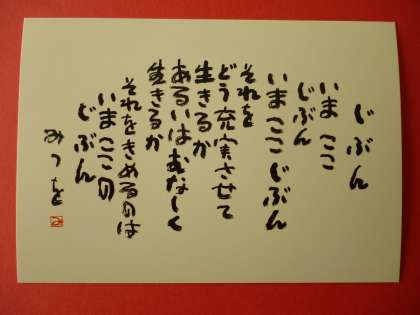 じぶん
いま ここ
じぶん
いま ここ じぶん
それを
どう充実させて
生きるか
あるいはむなしく
生きるか
それをきめるのは
いま ここの
じぶん
みつを